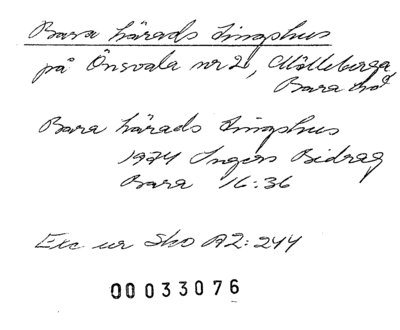 Bara härads Tingshus
på Önsvala nr 2, Mölleberga
Bara hd
Bara härads Tingshus
1974 Ingers Bidrag
Bara 16:36
Exc ur Sko A2:244
00033076